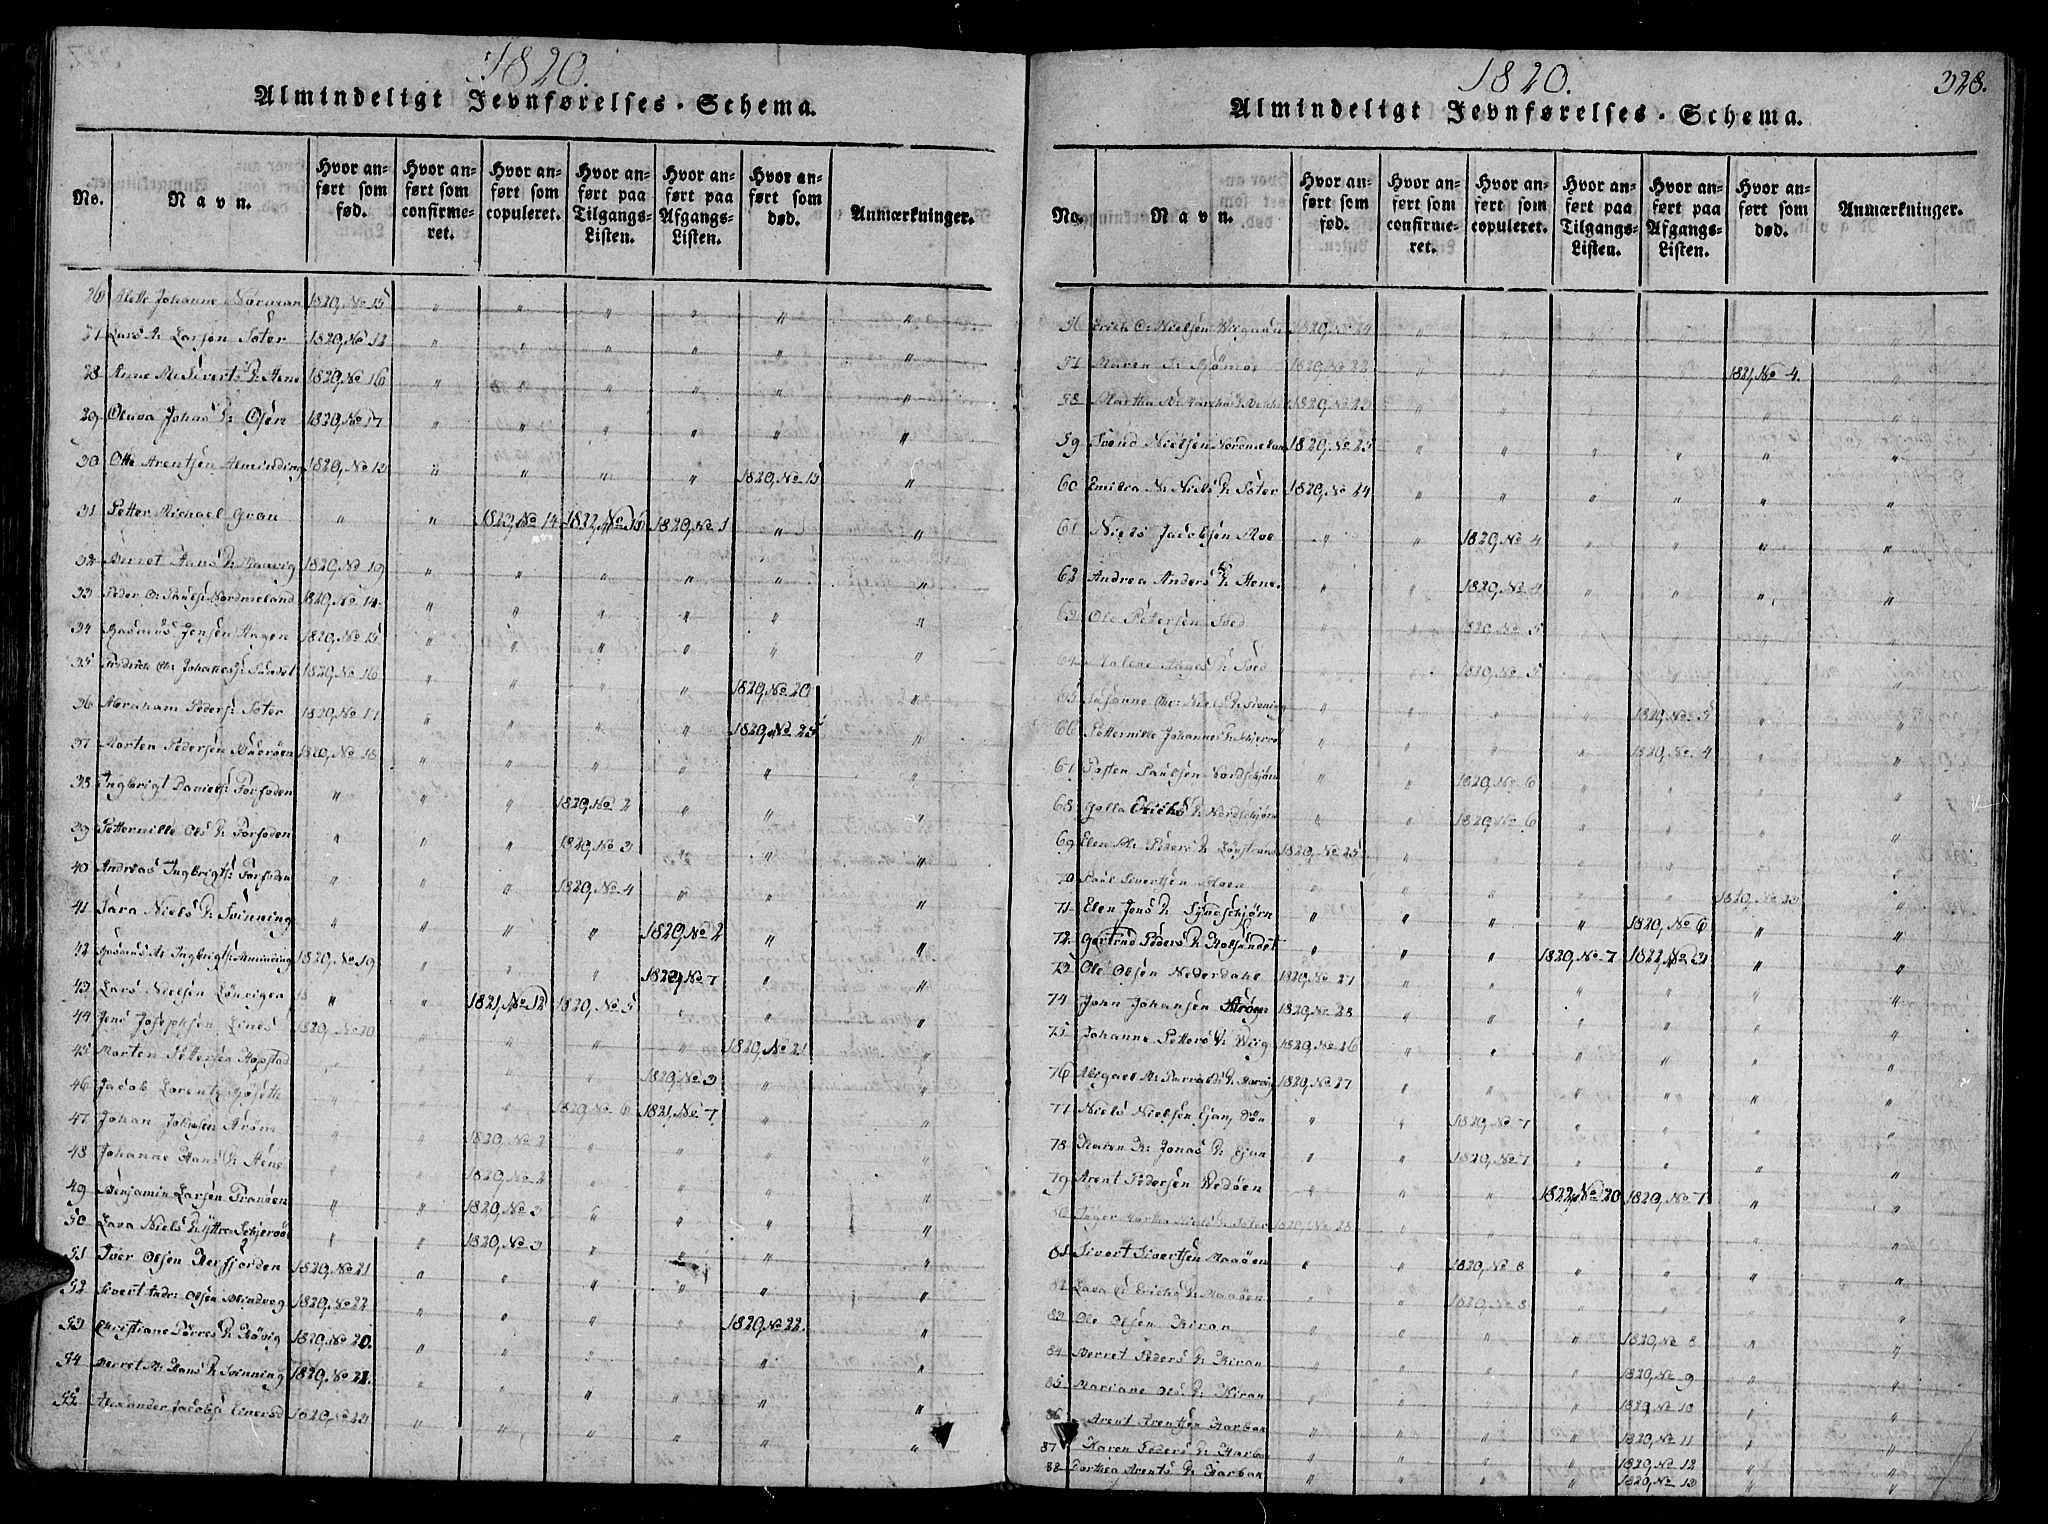 1820.
Almindeligt Jevnførelses-Schema.
No. Navn. Hvor anført som fød. Hvor anført som confirmeret. Hvor anført som copuleret. Hvor anført paa Tilgangs-Listen. Hvor anført paa Afgangs-Listen. Hvor anført som død. Anmærkninger.
26 Alette Johanne Norman 1820, No 15 " " " " " "
27 Lars A. Larsen Soter 1820, No 12 " " " " " "
28 Anne M. Siverts D: Hene 1820, No 16 " " " " " "
29 Olava Johns D: Osen 1820, No 17 " " " " " "
30 Otte Arentsen Alminding 1820, No 13 " " " " 1820, No 15 "
31 Petter Michael Gran " " 1823, No 14 1822, No 18 1820, No 1 " "
32 Berret Hans D: 1820, No 19 " " " " " "
33 Peder O: Pauls: Nordmeland 1820, No 14 " " " " " "
34 Rasmus Jensen Hagen 1820, No 15 " " " " " "
35 Fredrich Chr: Johannes: Sundet 1820, No 16 " " " " 1820, No 20 "
36 Abraham Peders: Soter 1820, No 17 " " " " 1820, No 25 "
37 Morten Pedersen 1820, No 18 " " " " " "
38 Ingbrigt Daniels: Forfoden " " " 1820, No 2 " " "
39 Petternille Ols D: Forfoden " " " 1820, No 3 " " "
40 Andreas Ingbrigts: Forfoden " " " 1820, No 4 " " "
41 Sara Niels D: Svinning " " " " 1820, No 2 " "
42 Rasmus A: Ingbrigts: Alminding 1820, No 19 " " " 1820, No 7 " "
43 Lars Nielsen " " 1821, No 12 1820, No 5 " " "
44 Jens Josephsen Lines 1820, No 20 " " " " 1820, No 21 "
45 Morten Pettersen Hopstad " " " " 1820, No 3 " "
46 Jacob Lorentz Roseth " " " 1820, No 6 1821, No 7 " "
47 Johan Johnsen Strøm " " 1820, No 2 " " " "
48 Johanne Hans D: Hene " " 1820, No 2 " " " "
49 Benjamin Larsen Tranöen " " 1820, No 3 " " " "
50 Lava Niels D: Yttre Schjervö " " 1820, No 3 " " " "
51 Iver Olsen Berfjorden 1820, No 21 " " " " " "
52 Sivert Andr: Olsen 1820, No 22 " " " " 1820, No 22. "
53 Christiane Torres D: 1820, No 20. " " " " " "
54 Berret M: Hans D: Svinning 1820, No 21. " " " " " "
55 Alexander Jacobs: 1820, No 23 " " " " " "
1820.
328.
Almindeligt Jevnførelses-Schema.
No. Navn. Hvor anført som fød. Hvor anført som confirmeret. Hvor anført som copuleret. Hvor anført paa Tilgangs-Listen. Hvor anført paa Afgangs-Listen. Hvor anført som død. Anmærkninger.
56 Erich O: Nielsen 1820, No 24 " " " " " "
57 Maren S: 1820, No 22 " " " " 1821, No 4. "
58 Martha M: 1820, No 23 " " " " " "
59 Svend Nielsen Nordmeland 1820, No 25 " " " " " "
60 Emilia N: Niels D: Soter 1820, No 24 " " " " " "
61 Niels Jacobsen Moe " " 1820, No 4 " " " "
62 Andrea Anders D: Hene. " " 1820, No 4 " " " "
63 Ole Pettersen Soed " " 1820 No 5 " " " "
64 Malene D: Soed " " 1820, No 5 " " " "
65 Susanne Chr: Niels D: Svinning " " " " 1820, No 5 " "
66 Petternille Johannes D: Schjervö " " " " 1820, No 4 " "
67 Paulsen Nordschjörn " " 1820, No 6 " " " "
68 Erichs D: Nordschjörn " " 1820, No 6 " " " "
69 Elen M: Peders D: 1820, No 25 " " " " " "
70 Paul Sivertsen Moen " " " " " 1820, No 23 "
71 Elen Jens D: Syndschjörn " " " " 1820, No 6 " "
72 Gertrud Peders D: " " " 1820, No 7 1822, No 3 " "
73 Ole Olsen Nederdahl 1820, No 27 " " " " " "
74 John Johansen 1820, No 28 " " " " " "
75 Johanne Petters D: 1820, No 26 " " " " " "
76 Abigael M: D: 1820, No 27 " " " " " "
77 Niels Nielsen " " 1820, No 7 " " " "
78 Karen K: Jonas D: " " 1820, No 7 " " " "
79 Arent Pedersen Vedöen " " " 1822, No 20 1820, No 7 " "
80 Martha Niels D: Soter 1820, No 28 " " " " " "
81 Sivert Sivertsen " " 1820, No 8 " " " "
82 Lava C: Erichs D: " " 1820, No 8 " " " "
83 Ole Olsen Kiran " " " " 1820, No 8 " "
84 Berret Peders D: Kiran " " " " 1820, No 9 " "
85 Mariane Ols D: Kiran " " " " 1820, No 10 " "
86 Arent Arentsen Harbak " " " " 1820, No 11 " "
87 Karen Peders D: Harbak " " " " 1820, No 12 " "
88 Dorthea Arents D: Harbak " " " " 1820, No 13 " "